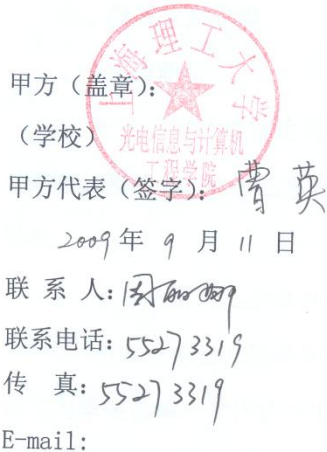 上海理工大学
甲方（盖章）：
（学校）
光电信息与计算机
工程学院
甲方代表（签字）：曹英
2009年 9 月 11 日
联 系 人：周丽娜
联系电话：55273319
传 真：55273319
E-mail: